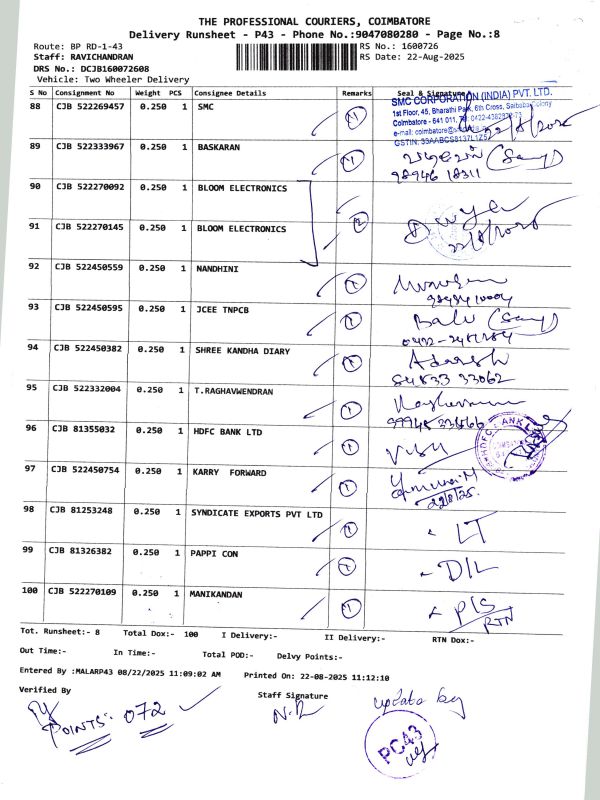 THE PROFESSIONAL COURIERS, COIMBATORE
Delivery Runsheet - P43 - Phone No.:9047080280 - Page No.:8
Route: BP RD-1-43 RS No.: 1600726
Staff: RAVICHANDRAN RS Date: 22-Aug-2025
DRS No.: DCJB160072608
Vehicle: Two Wheeler Delivery
S No Consignment No Weight PCS Consignee Details Remarks Seal & Signature
88 CJB 522269457 0.250 1 SMC 1
SMC CORPORATION (INDIA) PVT. LTD.
1st Floor, 45, Bharathi Park, 6th Cross, Saibaba Colony
Coimbatore - 641 011
GSTIN: 33AABCS8137L1Z5
22/8/2025
89 CJB 522333967 0.250 1 BASKARAN 1
98946 18311
90 CJB 522270092 0.250 1 BLOOM ELECTRONICS
91 CJB 522270145 0.250 1 BLOOM ELECTRONICS 2
22/8/2025
92 CJB 522450559 0.250 1 NANDHINI 1
93 CJB 522450595 0.250 1 JCEE TNPCB 1 Balu
94 CJB 522450382 0.250 1 SHREE KANDHA DIARY 1 Adarsh
84833 33062
95 CJB 522332004 0.250 1 T.RAGHAVWENDRAN 1
96 CJB 81355032 0.250 1 HDFC BANK LTD 1
97 CJB 522450754 0.250 1 KARRY FORWARD 1
22/8/25.
98 CJB 81253248 0.250 1 SYNDICATE EXPORTS PVT LTD 1 LT
99 CJB 81326382 0.250 1 PAPPI CON 1 D/L
100 CJB 522270109 0.250 1 MANIKANDAN 1 P/S
RTN
Tot. Runsheet:- 8 Total Dox:- 100 I Delivery:- II Delivery:- RTN Dox:-
Out Time:- In Time:- Total POD:- Delvy Points:-
Entered By :MALARP43 08/22/2025 11:09:02 AM Printed On: 22-08-2025 11:12:10
Verified By Staff Signature update by
POINTS: 072 N.R
PC43